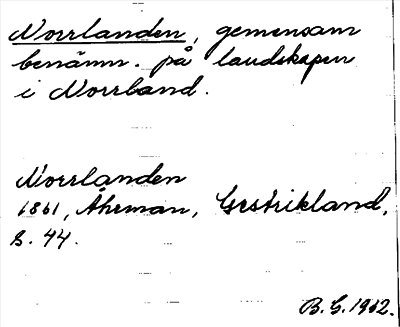 Norrlanden, gemensam
benämn. på landskapen
i Norrland.
Norrlanden
1861, Åhrman, Gestrikland,
s. 44.
B. G. 1912.